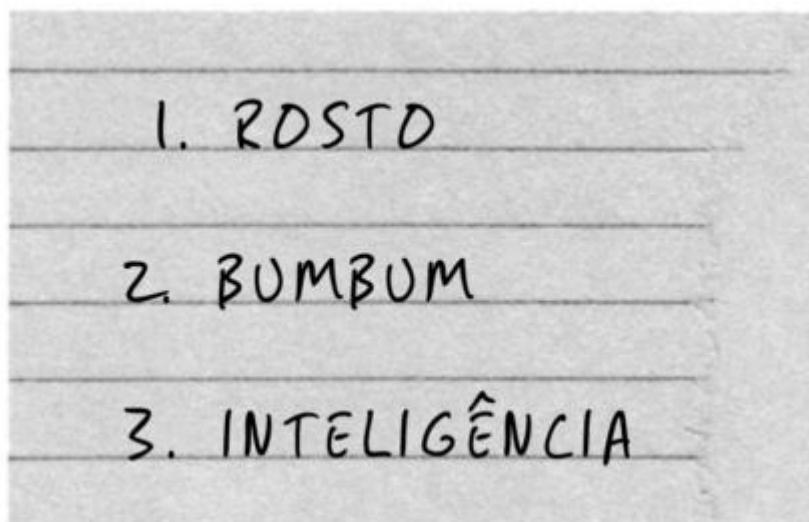 1. ROSTO
2. BUMBUM
3. INTELIGÊNCIA